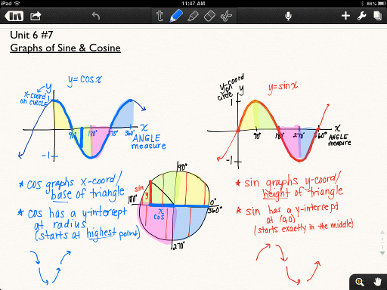 iPad
11:47 AM
77%
Unit 6 #7
Graphs of Sine & Cosine
y=cosx
y
x-coord
on circle
x
90° 180° 270° 360°
ANGLE
measure
-1
* cos graphs x-coord/
base of triangle
* cos has a y-intercept
at radius
(starts at highest point)
90°
180°
0°
360°
270°
sin
x
cos
y=sinx
y-coord
on circle
y
x
90° 180° 270° 360°
ANGLE
measure
-1
* sin graphs y-coord/
height of triangle
* sin has a y-intercept
at (0,0)
(starts exactly in the middle)